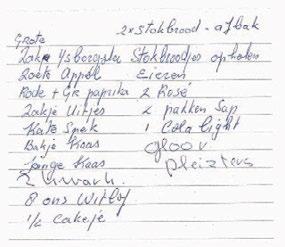 2x Stokbrood - afbak
Grote
Zakje Ysbergsla Stokbroodjes ophalen
Zoete Appel Eieren
Rode + Gr paprika 2 Rosé
Zakje Uitjes 2 pakken Sap
Kate Spek 1 Cola light
Bakje Kaas gloor
Jonge Kaas Pleizters
2 kwark
8 ons Witlof
1/2 cakeje